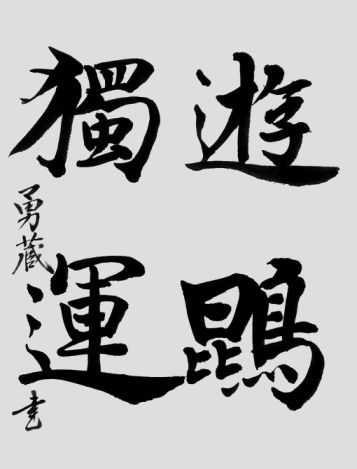 遊鵾
獨運
勇蔵書